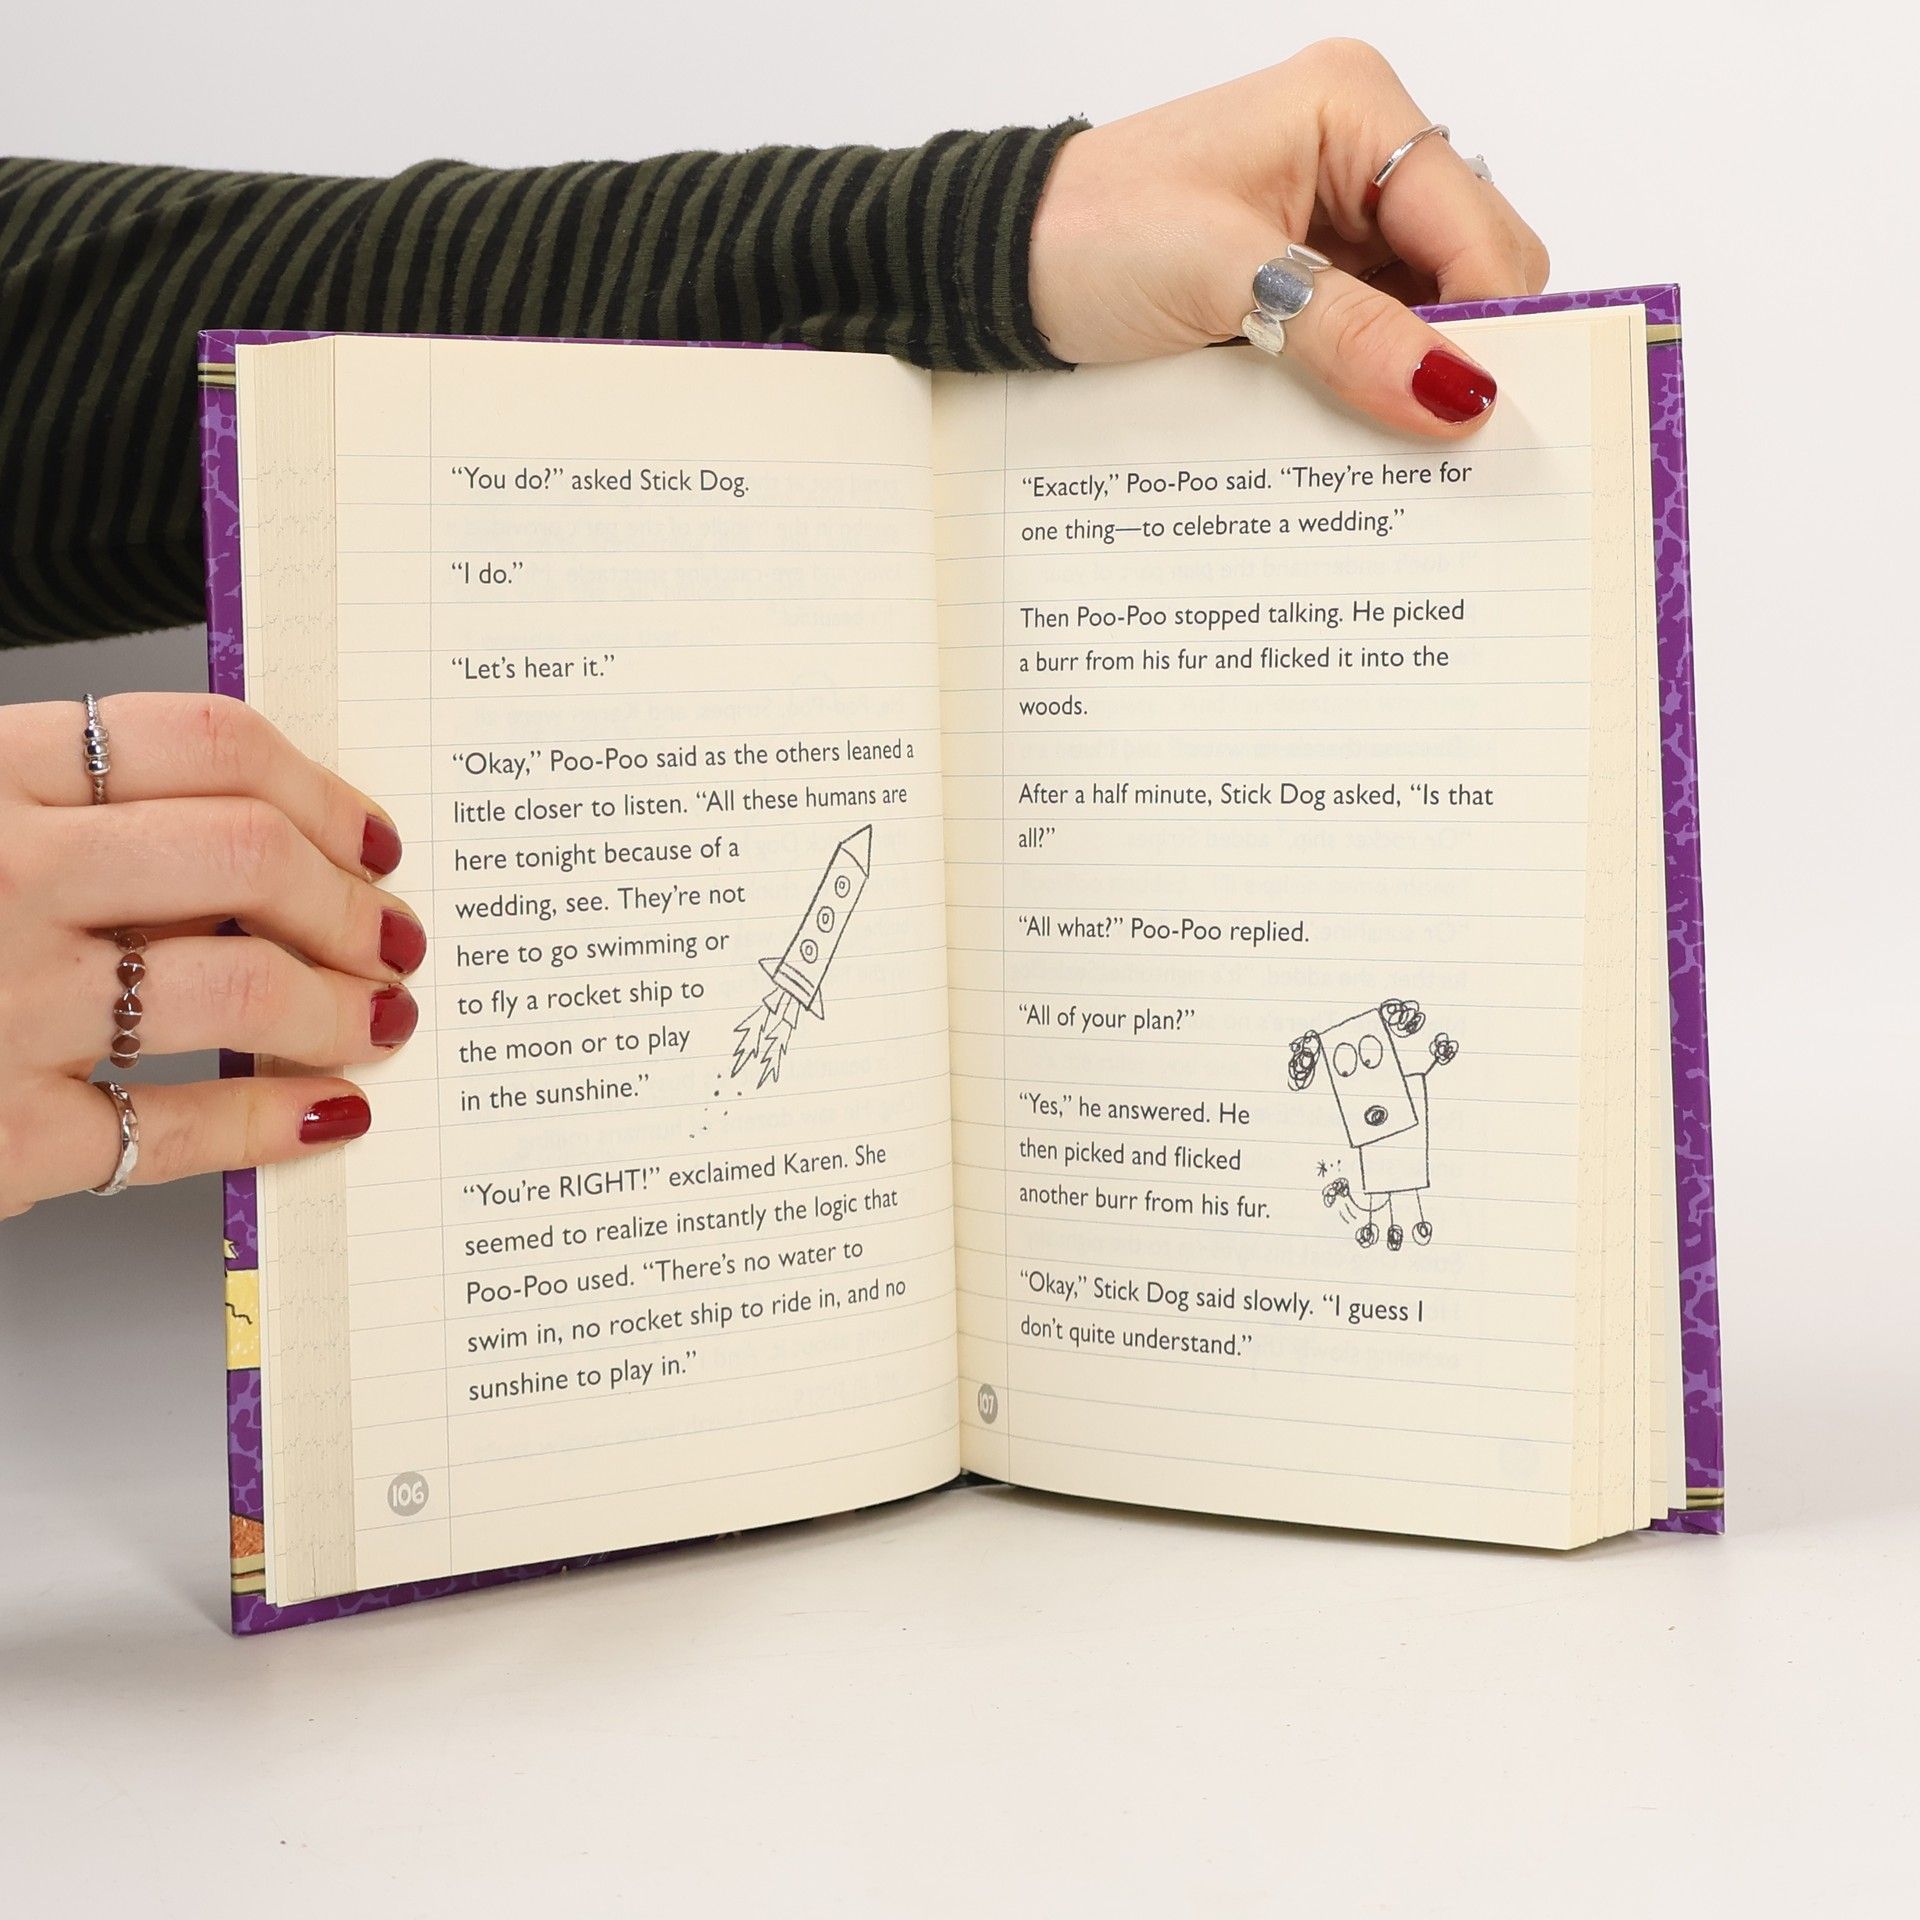 “You do?” asked Stick Dog.
“I do.”
“Let’s hear it.”
“Okay,” Poo-Poo said as the others leaned a
little closer to listen. “All these humans are
here tonight because of a
wedding, see. They’re not
here to go swimming or
to fly a rocket ship to
the moon or to play
in the sunshine.”
“You’re RIGHT!” exclaimed Karen. She
seemed to realize instantly the logic that
Poo-Poo used. “There’s no water to
swim in, no rocket ship to ride in, and no
sunshine to play in.”
106
“Exactly,” Poo-Poo said. “They’re here for
one thing—to celebrate a wedding.”
Then Poo-Poo stopped talking. He picked
a burr from his fur and flicked it into the
woods.
After a half minute, Stick Dog asked, “Is that
all?”
“All what?” Poo-Poo replied.
“All of your plan?”
“Yes,” he answered. He
then picked and flicked
another burr from his fur.
“Okay,” Stick Dog said slowly. “I guess I
don’t quite understand.”
107